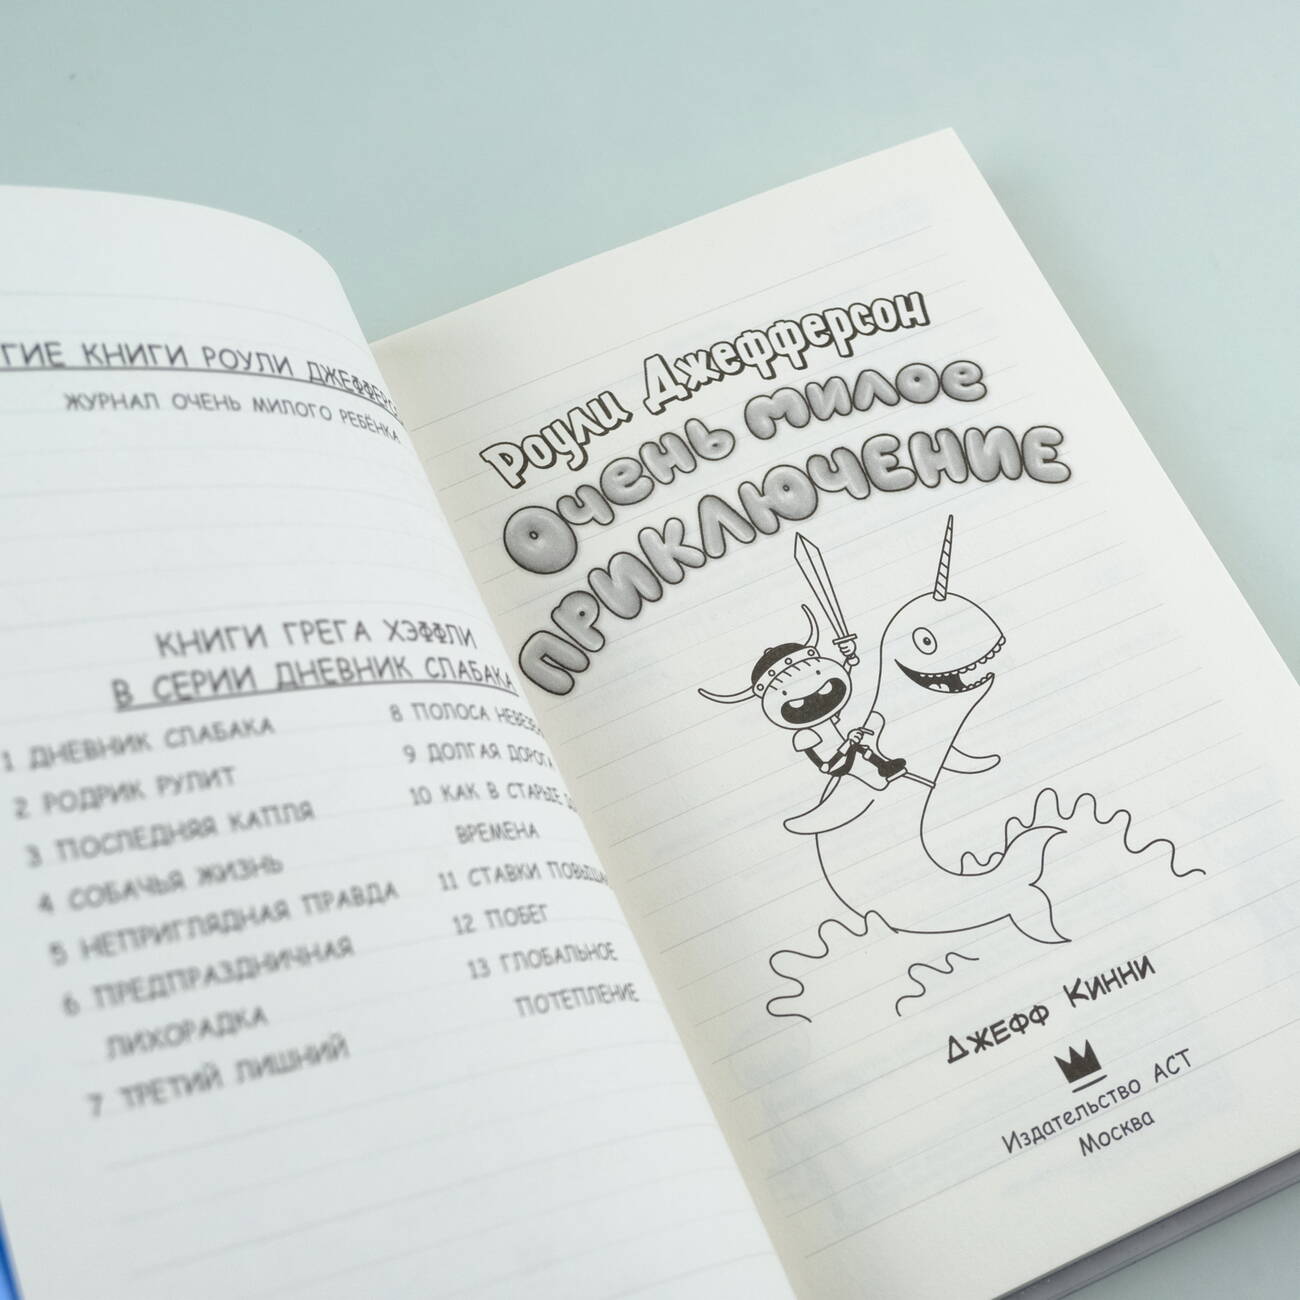 ГИЕ КНИГИ РОУЛИ ДЖЕФФЕРС
ЖУРНАЛ ОЧЕНЬ МИЛОГО РЕБЁНКА
КНИГИ ГРЕГА ХЭФФЛИ
В СЕРИИ ДНЕВНИК СЛАБАКА
1 ДНЕВНИК СЛАБАКА
2 РОДРИК РУЛИТ
3 ПОСЛЕДНЯЯ КАПЛЯ
4 СОБАЧЬЯ ЖИЗНЬ
5 НЕПРИГЛЯДНАЯ ПРАВДА
6 ПРЕДПРАЗДНИЧНАЯ
ЛИХОРАДКА
7 ТРЕТИЙ ЛИШНИЙ
8 ПОЛОСА НЕВЕЗЕ
9 ДОЛГАЯ ДОРОГА
10 КАК В СТАРЫЕ Д
ВРЕМЕНА
11 СТАВКИ ПОВЫША
12 ПОБЕГ
13 ГЛОБАЛЬНОЕ
ПОТЕПЛЕНИЕ
Роули Джефферсон
Очень милое
приключение
Джефф Кинни
Издательство АСТ
Москва